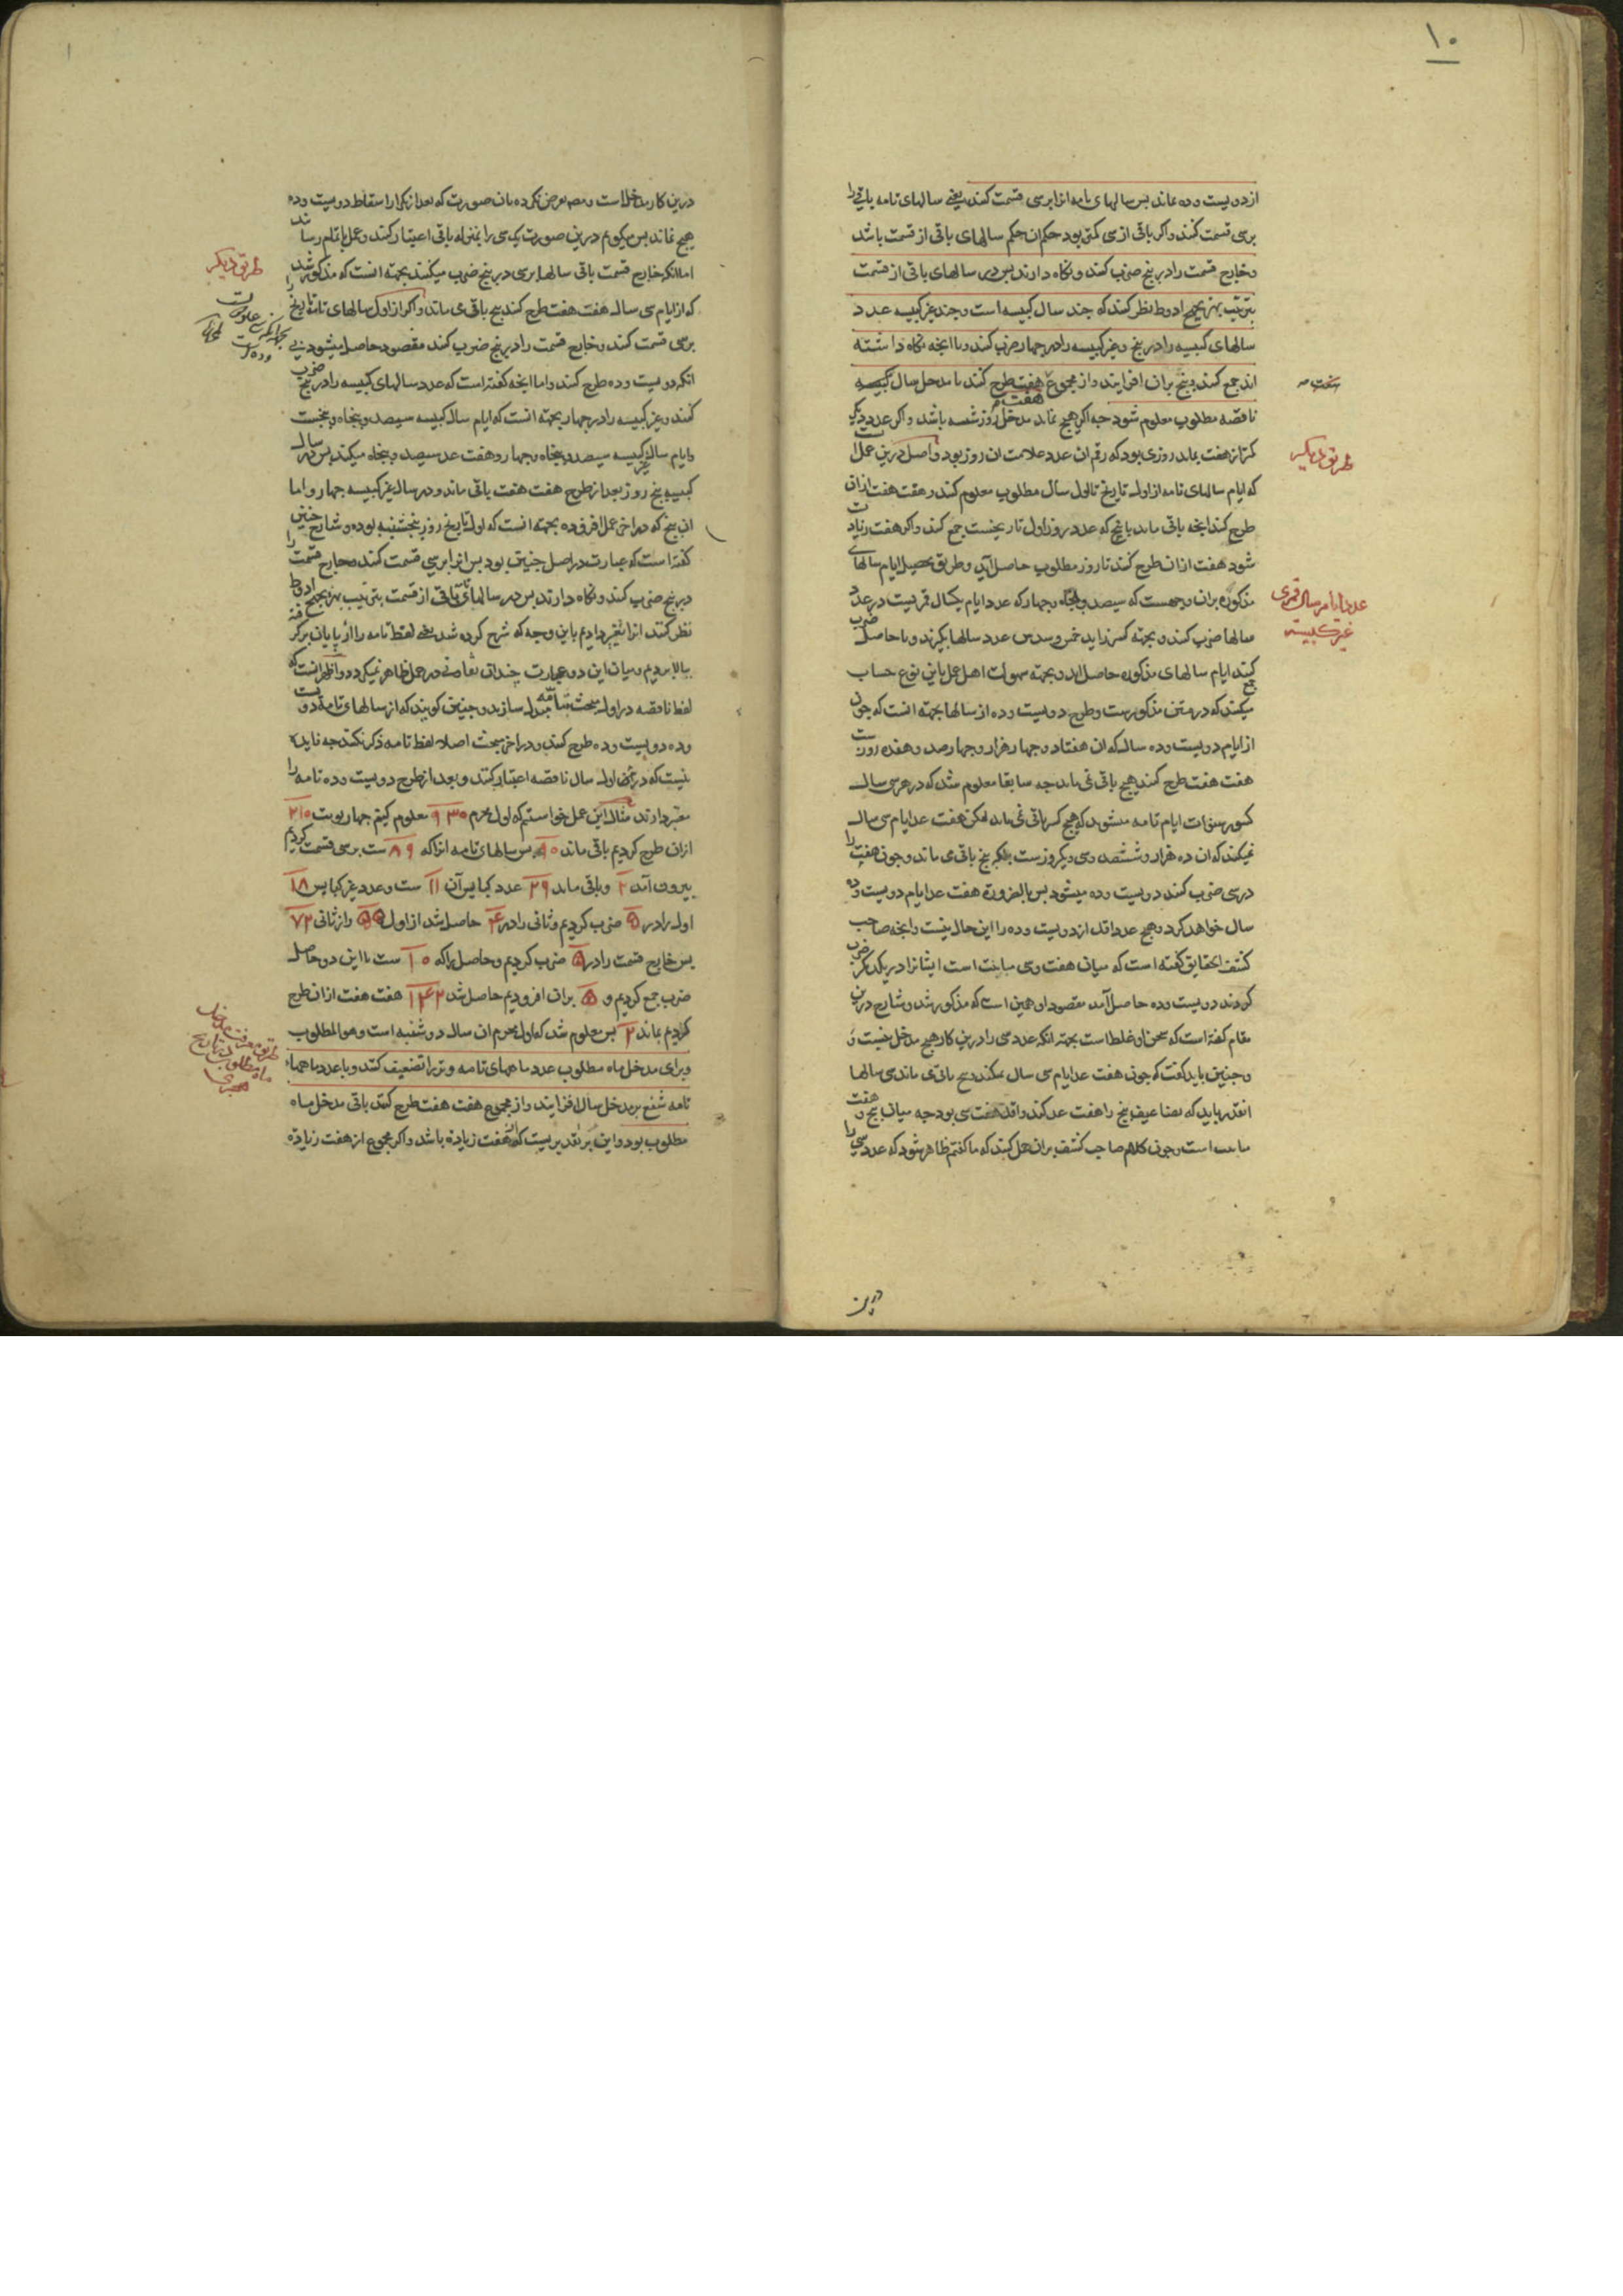 ۱۰
از دویست و ده بماند پس سالهای تامه انرا بر سی قسمت کنند یعنی سالهای تامه باقی را
بر سی قسمت کنند و اکر باقی از سی کمتر بود حکم ان حکم سالهای باقی از قسمت باشد
و خارج قسمت را در پنج ضرب کنند و نکاه دارند پس در سالهای باقی از قسمت
بترتیب بهزیجوح ادوط نظر کنند که چند سال کبیسه است و چند غیر کبیسه عدد
سالهای کبیسه را در پنج و غیر کبیسه را در چهار ضرب کنند و با انچه نکاه داشته
اند جمع کنند و پنج بران افزایند و از مجموع هفت هفت طرح کنند تا مدخل سال
ناقصه مطلوب معلوم شود چه اکر هیچ نماند مدخل روز شنبه باشد و اکر عدد دیکر
کمتر از هفت بماند روزی بود که رقم ان عدد علامت ان روز بود و اصل درین عمل
طریق دیکر
که ایام سالهای تامه از اول تاریخ تا اول سال مطلوب معلوم کنند و هفت هفت ازان
طرح کنند انچه باقی ماند با پنج که عدد روز اول تاریخست جمع کنند و اکر هفت زیاد
شود هفت ازان طرح کنند تا روز مطلوب حاصل آید و طریق تحصیل ایام سالهای
مذکوره بران وجهست که سیصد و پنجاه و چهار که عدد ایام یکسال قمریست در عدد
عدد ایام سال قمری
غیر کبیسه
سالها ضرب کنند و بجهة کسر زاید خمس و سدس عدد سالها بکیرند و با حاصل ضرب
کنند ایام سالهای مذکوره حاصل اید و بجهة سهولت اهل عمل باین نوع حساب
میکنند که در متن مذکورست و طرح دویست و ده از سالها بجهة انست که چون
از ایام دویست و ده سال که ان هفتاد و چهار هزار و چهارصد و هفده روزست
هفت هفت طرح کنند هیچ باقی نمی ماند چه سابقا معلوم شد که در هر سی سال
کسور سنوات ایام تامه میشود که هیچ کسر باقی نمی ماند لیکن هفت عد ایام سی سال
نمیکند که ان ده هزار و ششصد و سی و یکروزست بلکه پنج باقی می ماند و چون هفت را
در سی ضرب کنند دویست و ده میشود پس بالضروره هفت عد ایام دویست و ده
سال خواهد کرد و هیچ عدد اقل از دویست و ده را این حال نیست و انچه صاحب
کشف الحقایق کفته است که میان هفت و سی مباینت است ایشانرا در یکدیکر ضرب
کردند دویست و ده حاصل آمد مقصود او همین است که مذکور شد و شارح درین
مقام کفته است که سخن او غلط است بجهة انکه عدد سی را درین کار هیچ مدخل نیست و
و چنین باید کفت که چون هفت عد ایام سی سال نمیکند و پنج باقی می ماند سی سالها
انقدر باید که تضاعیف پنج را هفت عد کند و اقلش هفت سی بود چه میان پنج و هفت
مباینت است و چون کلام صاحب کشف بران حمل کنند که ما کفتیم ظاهر شود که عدد سی را
درین
درین کار مدخل است و متعرض نکرده بان صورت که بعد از تکرار اسقاط دویست و ده
هیچ نماند پس میکویم درین صورت یک سی را بمنزله باقی اعتبار کنند و عمل باتمام رسانند
طریق دیکر
اما انکه خارج قسمت باقی سالها بر سی در پنج ضرب میکنند بجهة انست که مذکور شد
که از ایام سی سال هفت هفت طرح کنند پنج باقی می ماند و اکر از اول سالهای تامه تاریخ را
بر سی قسمت کنند و خارج قسمت را در پنج ضرب کنند مقصود حاصل میشود بی
انکه دویست و ده طرح کنند و اما انچه کفته است که عدد سالهای کبیسه را در پنج ضرب
کنند و غیر کبیسه را در چهار بجهة انست که ایام سال کبیسه سیصد و پنجاه و پنجست
و ایام سال غیر کبیسه سیصد و پنجاه و چهار و هفت عد سیصد و پنجاه میکند پس در سال
کبیسه پنج روز بعد از طرح هفت هفت باقی ماند و در سال غیر کبیسه چهار و اما
ان پنج که در اخر عمل افزوده بجهة انست که اول تاریخ روز پنجشنبه بوده و شارح چنین
کفته است که عبارت در اصل چنین بود پس انرا بر سی قسمت کنند و خارج قسمت را
در پنج ضرب کنند و نکاه دارند پس در سالهای باقی از قسمت بترتیب بهزیجوح ادوط
نظر کنند انرا تغیر دادیم باین وجه که شرح کرده شد یعنی لفظ تامه را از پایان بر کرفته
ببالا بردیم و میان این دو عبارت چندان تفاوتی در عمل ظاهر نمیکردد و اظهر انست که
لفظ ناقصه در اول مبحث بتامه مبدل سازند و چنین کویند که از سالهای تامه دویست
و ده دویست و ده طرح کنند و در اخر مبحث اصلا لفظ تامه ذکر نکنند چه فایده
نیست که در اول سال ناقصه اعتبار کنند و بعد از طرح دویست و ده تامه را
معتبر دارند مثال این عمل خواستیم که اول محرم ۹۳۰ معلوم کنیم چهار نوبت ۲۱۰
ازان طرح کردیم باقی ماند ۹۰ پس سالهای تامه انرا که ۸۹ ست بر سی قسمت کردیم
بیرون آمد ۲ و باقی ماند ۲۹ عدد کبایس آن ۱۱ ست و عدد غیر کبایس ۱۸
اول را در ۵ ضرب کردیم و ثانی را در ۴ حاصل شد از اول ۵۵ و از ثانی ۷۲
پس خارج قسمت را در ۵ ضرب کردیم و حاصل را که ۱۰ ست با این دو حاصل
ضرب جمع کردیم و ۵ بران افزودیم حاصل شد ۱۴۲ هفت هفت ازان طرح
کردیم بماند ۲ پس معلوم شد که اول محرم ان سال دوشنبه است و هو المطلوب
طریق معرفت مدخل
ماه مطلوب از تاریخ
هجری
و برای مدخل ماه مطلوب عدد ماههای تامه وتر را تضعیف کنند و با عدد ماههاء
تامه شفع بر مدخل سال افزایند و از مجموع هفت هفت طرح کنند باقی مدخل ماه
مطلوب بود و این بر تقدیریست که از هفت زیاده باشد و اکر مجموع از هفت زیاده